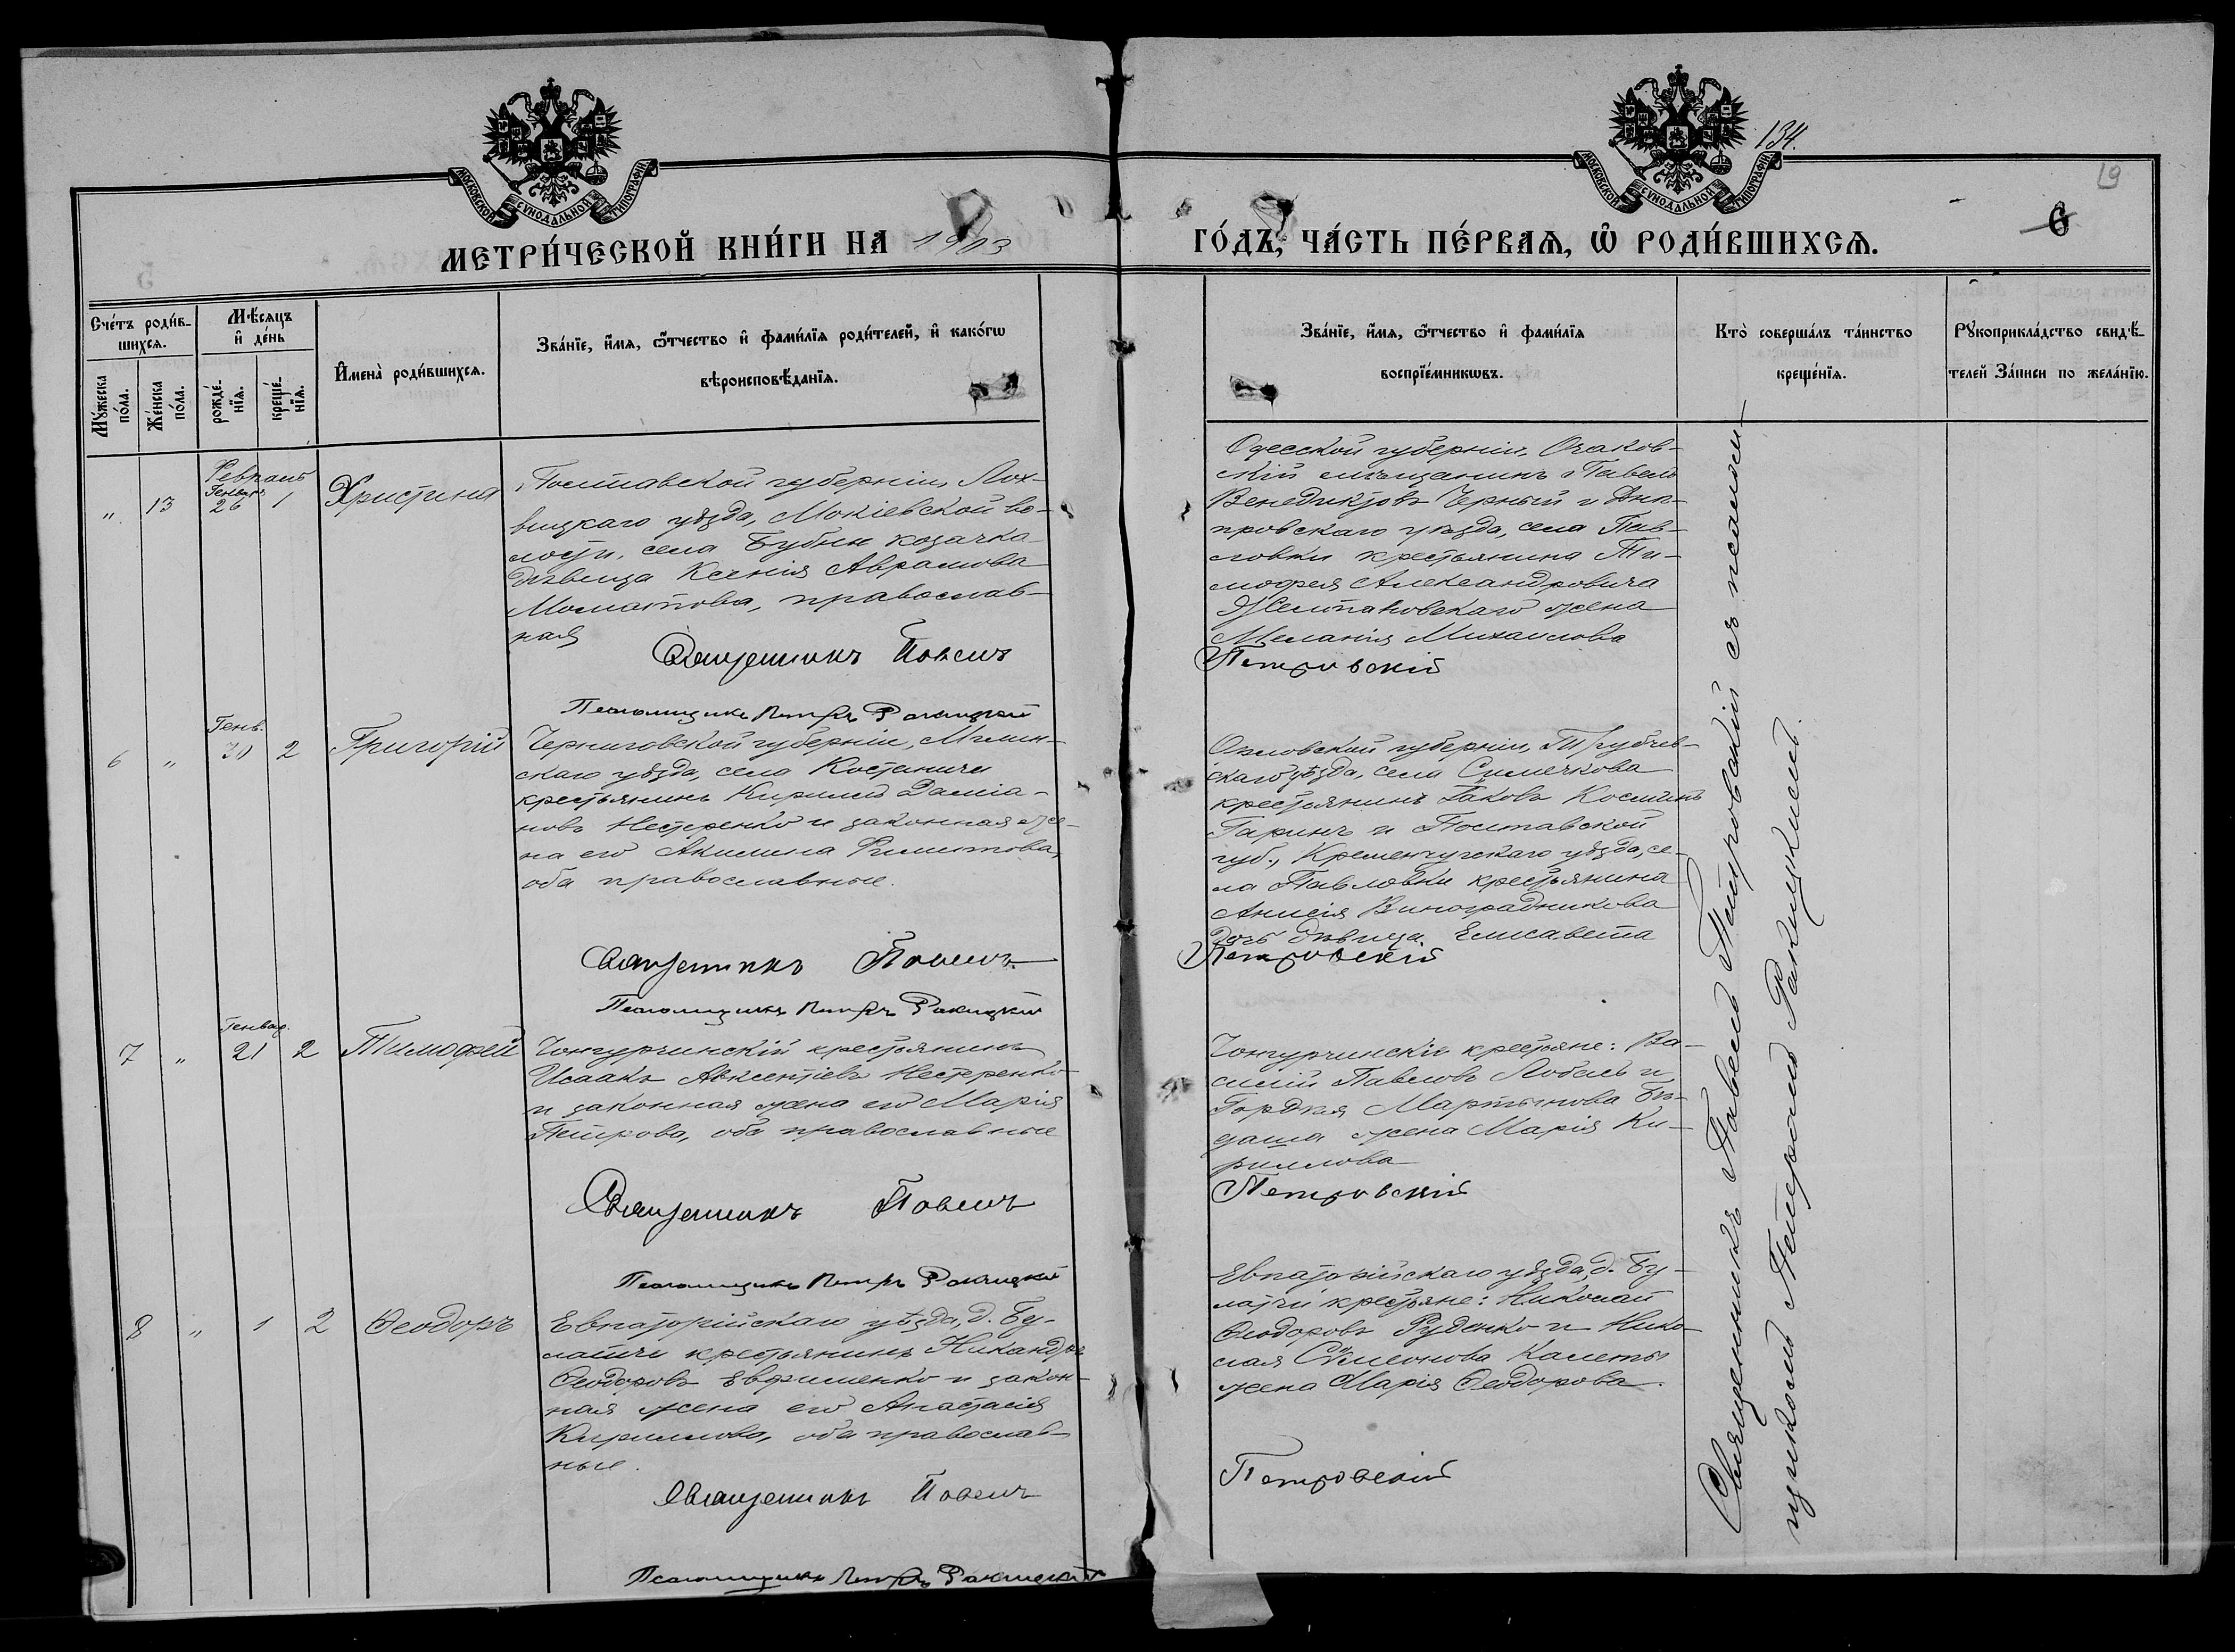 134.
19
6
МОСКОВСКОЙ СѴНОДАЛЬНОЙ ТИПОГРАФІИ
МОСКОВСКОЙ СѴНОДАЛЬНОЙ ТИПОГРАФІИ
МЕТРИ́ЧЕСКОЙ КНИ́ГИ НА 1903 ГО́ДЪ, ЧА́СТЬ ПЕ́РВАѦ, Ѡ҆ РОДИ́ВШИХСѦ.
Сче́тъ роди́в-
шихсѧ.
Мꙋ́жеска по́ла.
Же́нска по́ла.
Мѣ́сѧцъ
и҆ де́нь
рожде́-
нїѧ.
креще́-
нїѧ.
И҆мена̀ роди́вшихсѧ.
Зва́нїе, и҆́мѧ, ѻ҆́тчество и҆ фами́лїѧ роди́телей, и҆ како́гѡ
вѣроисповѣ́данїѧ.
Зва́нїе, и҆́мѧ, ѻ҆́тчество и҆ фами́лїѧ
воспрїе́мникѡвъ.
Кто̀ соверша́лъ та́инство
креще́нїѧ.
Рꙋкоприкла́дство свидѣ́-
телей За́писи по жела́нїю.
Февраль
Генварь
" 13 26 1 Христина
Полтавской губерніи, Лох-
вицкаго уѣзда, Мокіевской во-
лости, села Бубны козачка
дѣвица Ксенія Аврамова
православ-
ная
Священникъ Павелъ
Псаломщикъ Петръ Ракицкій
Одесской губерніи, Очаков-
скій мѣщанинъ Павелъ
Венедиктовъ Черный и Днѣ-
провскаго уѣзда, села Пав-
ловки крестьянина Ти-
мофея Александровича
Желтановскаго жена
Меланія Михаилова
Петровскій
Генв.
6 " 30 2 Григорій
Черниговской губерніи, Мглин-
скаго уѣзда, села Костеничи
крестьянинъ Кириллъ Даміа-
новъ Нестеренко и законная же-
на его Акилина Филиппова,
оба православные.
Священникъ Павелъ
Псаломщикъ Петръ Ракицкій
Орловской губерніи, Трубчев-
скаго уѣзда, села Симечкова
крестьянинъ Іаковъ Косминъ
Гаринъ и Полтавской
губ., Кременчугскаго уѣзда, се-
ла Павловки крестьянина
Анисія Виноградникова
дочь дѣвица Елисавета
Петровскій
Генвар.
7 " 21 2 Тимофей
Чонгурчинскій крестьянинъ
Исаакъ Авксентіевъ Нестеренко
и законная жена его Марія
Петрова, оба православные
Священникъ Павелъ
Псаломщикъ Петръ Ракицкій
Чонгурчинскіе крестьяне: Ва-
силій Павловъ Лобель и
Гордея Мартинова Би-
даша жена Марія Ки-
риллова
Петровскій
8 " 1 2 Ѳеодоръ
Евпаторійскаго уѣзда, д. Бу-
латчи крестьянинъ Никандръ
Ѳеодоровъ Евфименко и закон-
ная жена его Анастасія
Кириллова, оба православ-
ные.
Священникъ Павелъ
Псаломщикъ Петръ Ракицкій
Евпаторійскаго уѣзда, д. Бу-
латчи крестьяне: Николай
Ѳеодоровъ Руденко и Нико-
лая Сѵмеонова Калеты
жена Марія Ѳеодорова.
Петровскій
Священникъ Павелъ Петровскій съ псалом-
щикомъ Петромъ Ракицкимъ.